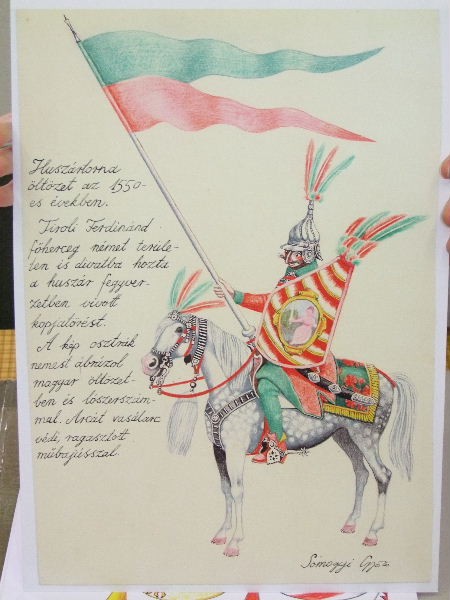 Huszártorna
öltözet az 1550-
es években.
Tiroli Ferdinánd
főherceg német terüle-
ten is divatba hozta
a huszár fegyver-
zetben vívott
kopjatörést.
A kép osztrák
nemest ábrázol
magyar öltözet-
ben és lószerszám-
mal. Arcát vasálarc
védi, ragasztott
műbajússzal.
Somogyi Győző